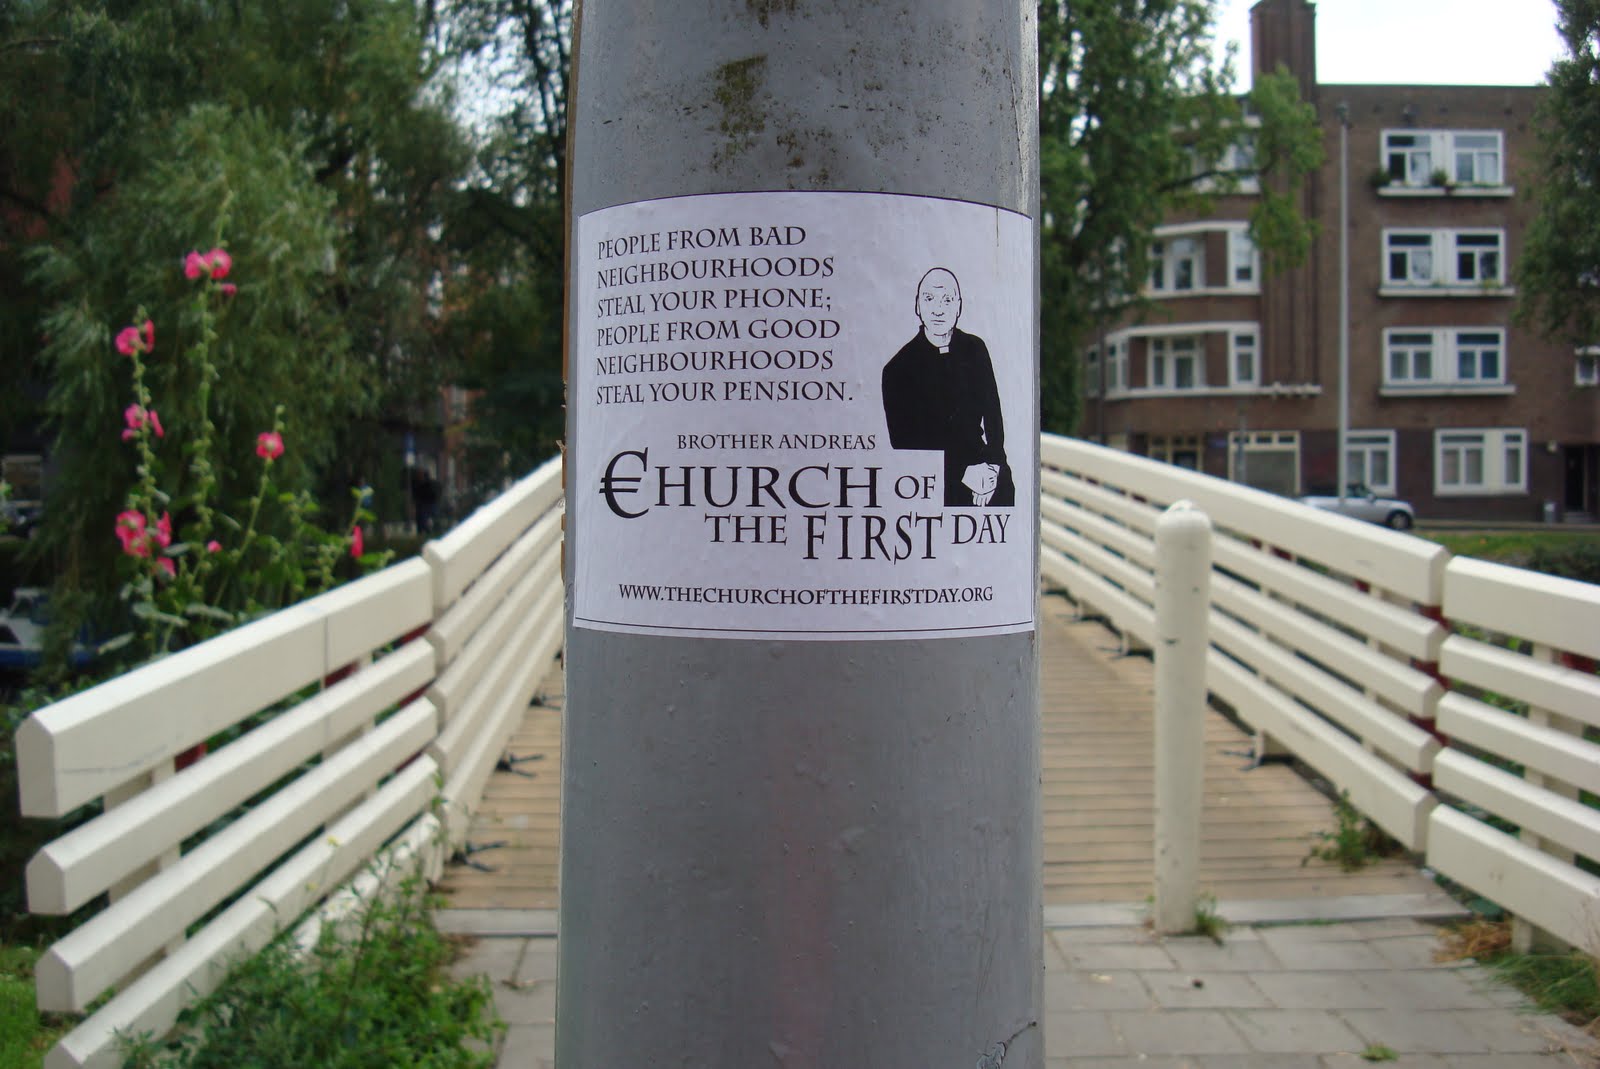 PEOPLE FROM BAD
NEIGHBOURHOODS
STEAL YOUR PHONE;
PEOPLE FROM GOOD
NEIGHBOURHOODS
STEAL YOUR PENSION.
BROTHER ANDREAS
€HURCH OF
THE FIRST DAY
WWW.THECHURCHOFTHEFIRSTDAY.ORG